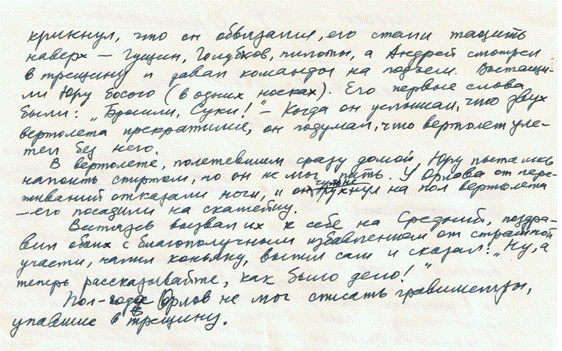 крикнул, что он обвязался, его стали тащить
наверх – Гущин, Голубков, пилоты, а Андрей смотрел
в трещину и давал команды на подъем. Вытащи-
ли Юру босого (в одних носках). Его первые слова
были: „Бросили, Суки!" – Когда он услышал, что двух
вертолета прекратился, он подумал, что вертолет уле-
тел без него.
В вертолете, полетевшим сразу домой, Юру пытались
напоить спиртом, но он не мог пить. У Орлова от пере-
живаний отказали ноги, и он рухнул на пол вертолета
– его посадили на скамейку.
Витязев вызвал их к себе на Средний, поздра-
вил обоих с благополучным избавлением от страшной
участи, налил коньяку, выпил сам и сказал: „Ну, а
теперь рассказывайте, как было дело!"
Пол-года Орлов не мог списать гравиметры,
упавшие в трещину.